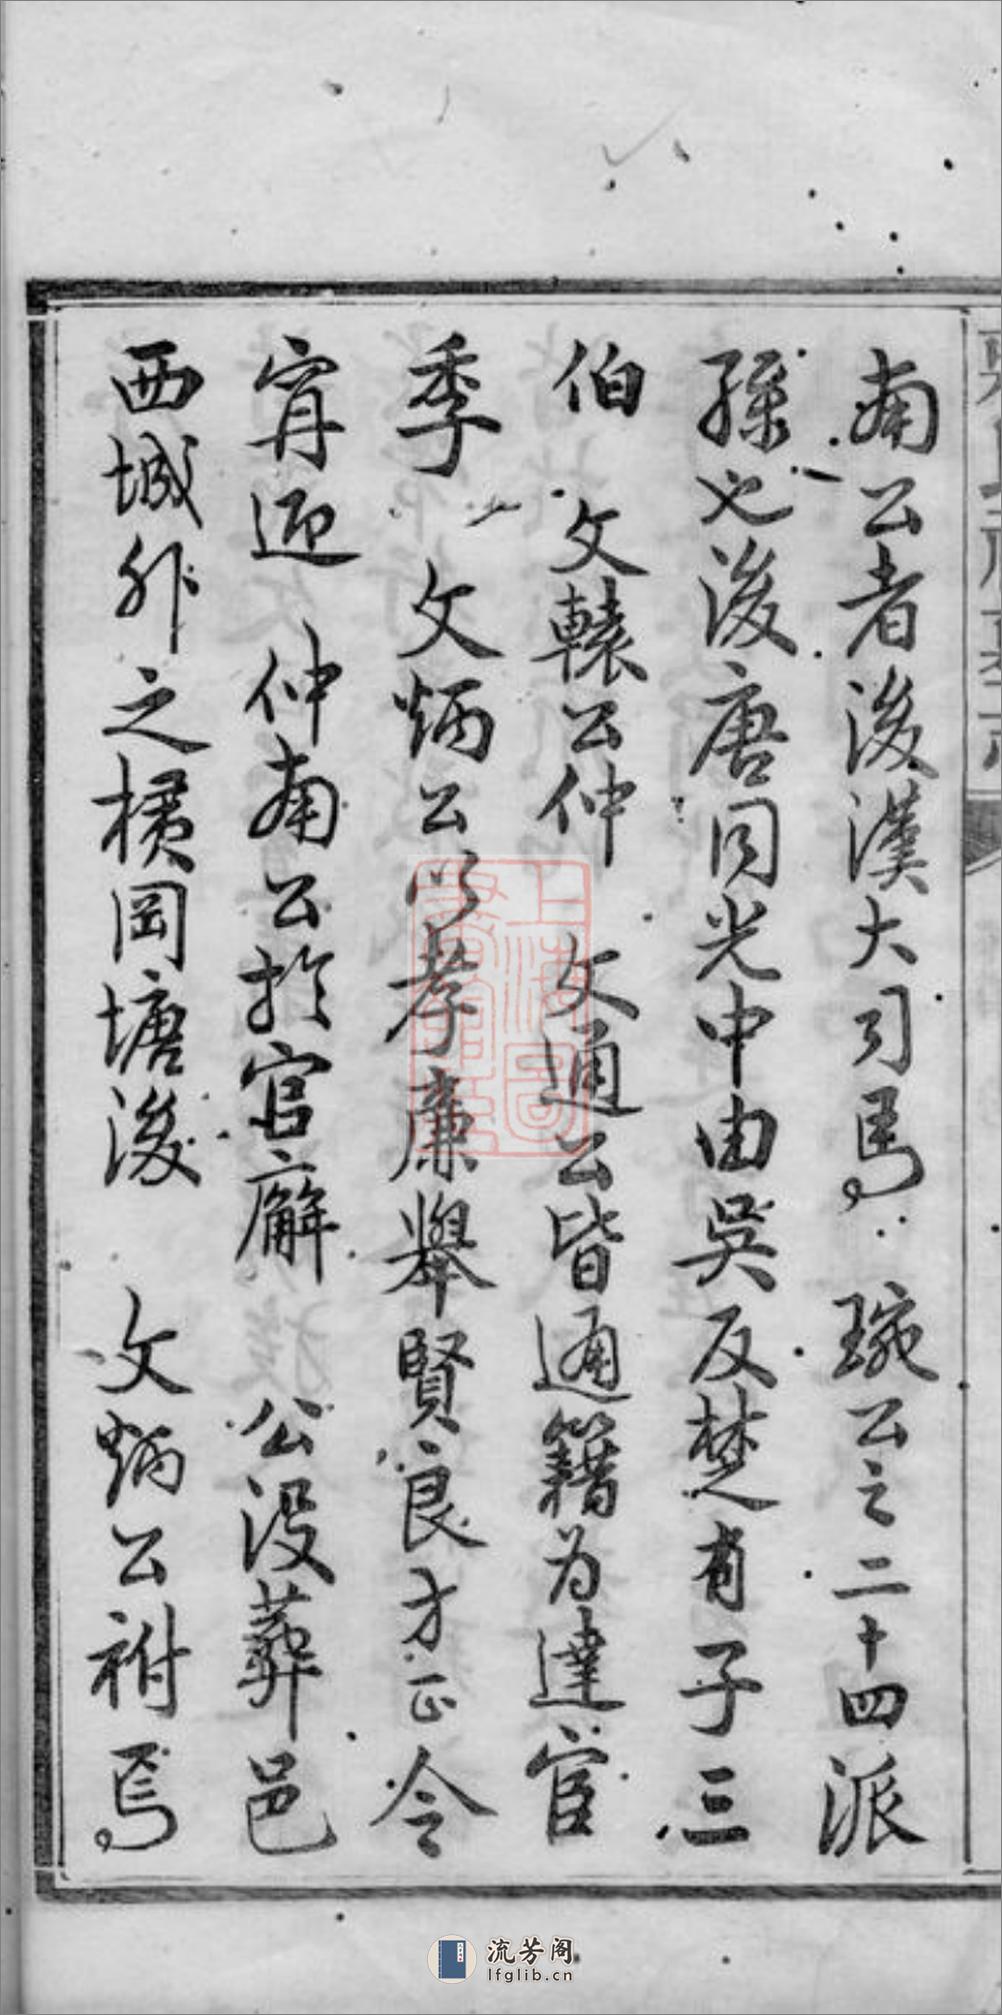 南公者後漢大司馬 琬公之二十四派
孫也後唐同光中由吳反楚有子三
伯 文轅公仲 文通公皆通籍为達官
季 文炳公以孝廉舉賢良方正令
甯迎 仲南公扵官廨 公没葬邑
西城外之横岡塘後 文炳公祔焉
上海圖
流芳阁
lfglib.cn